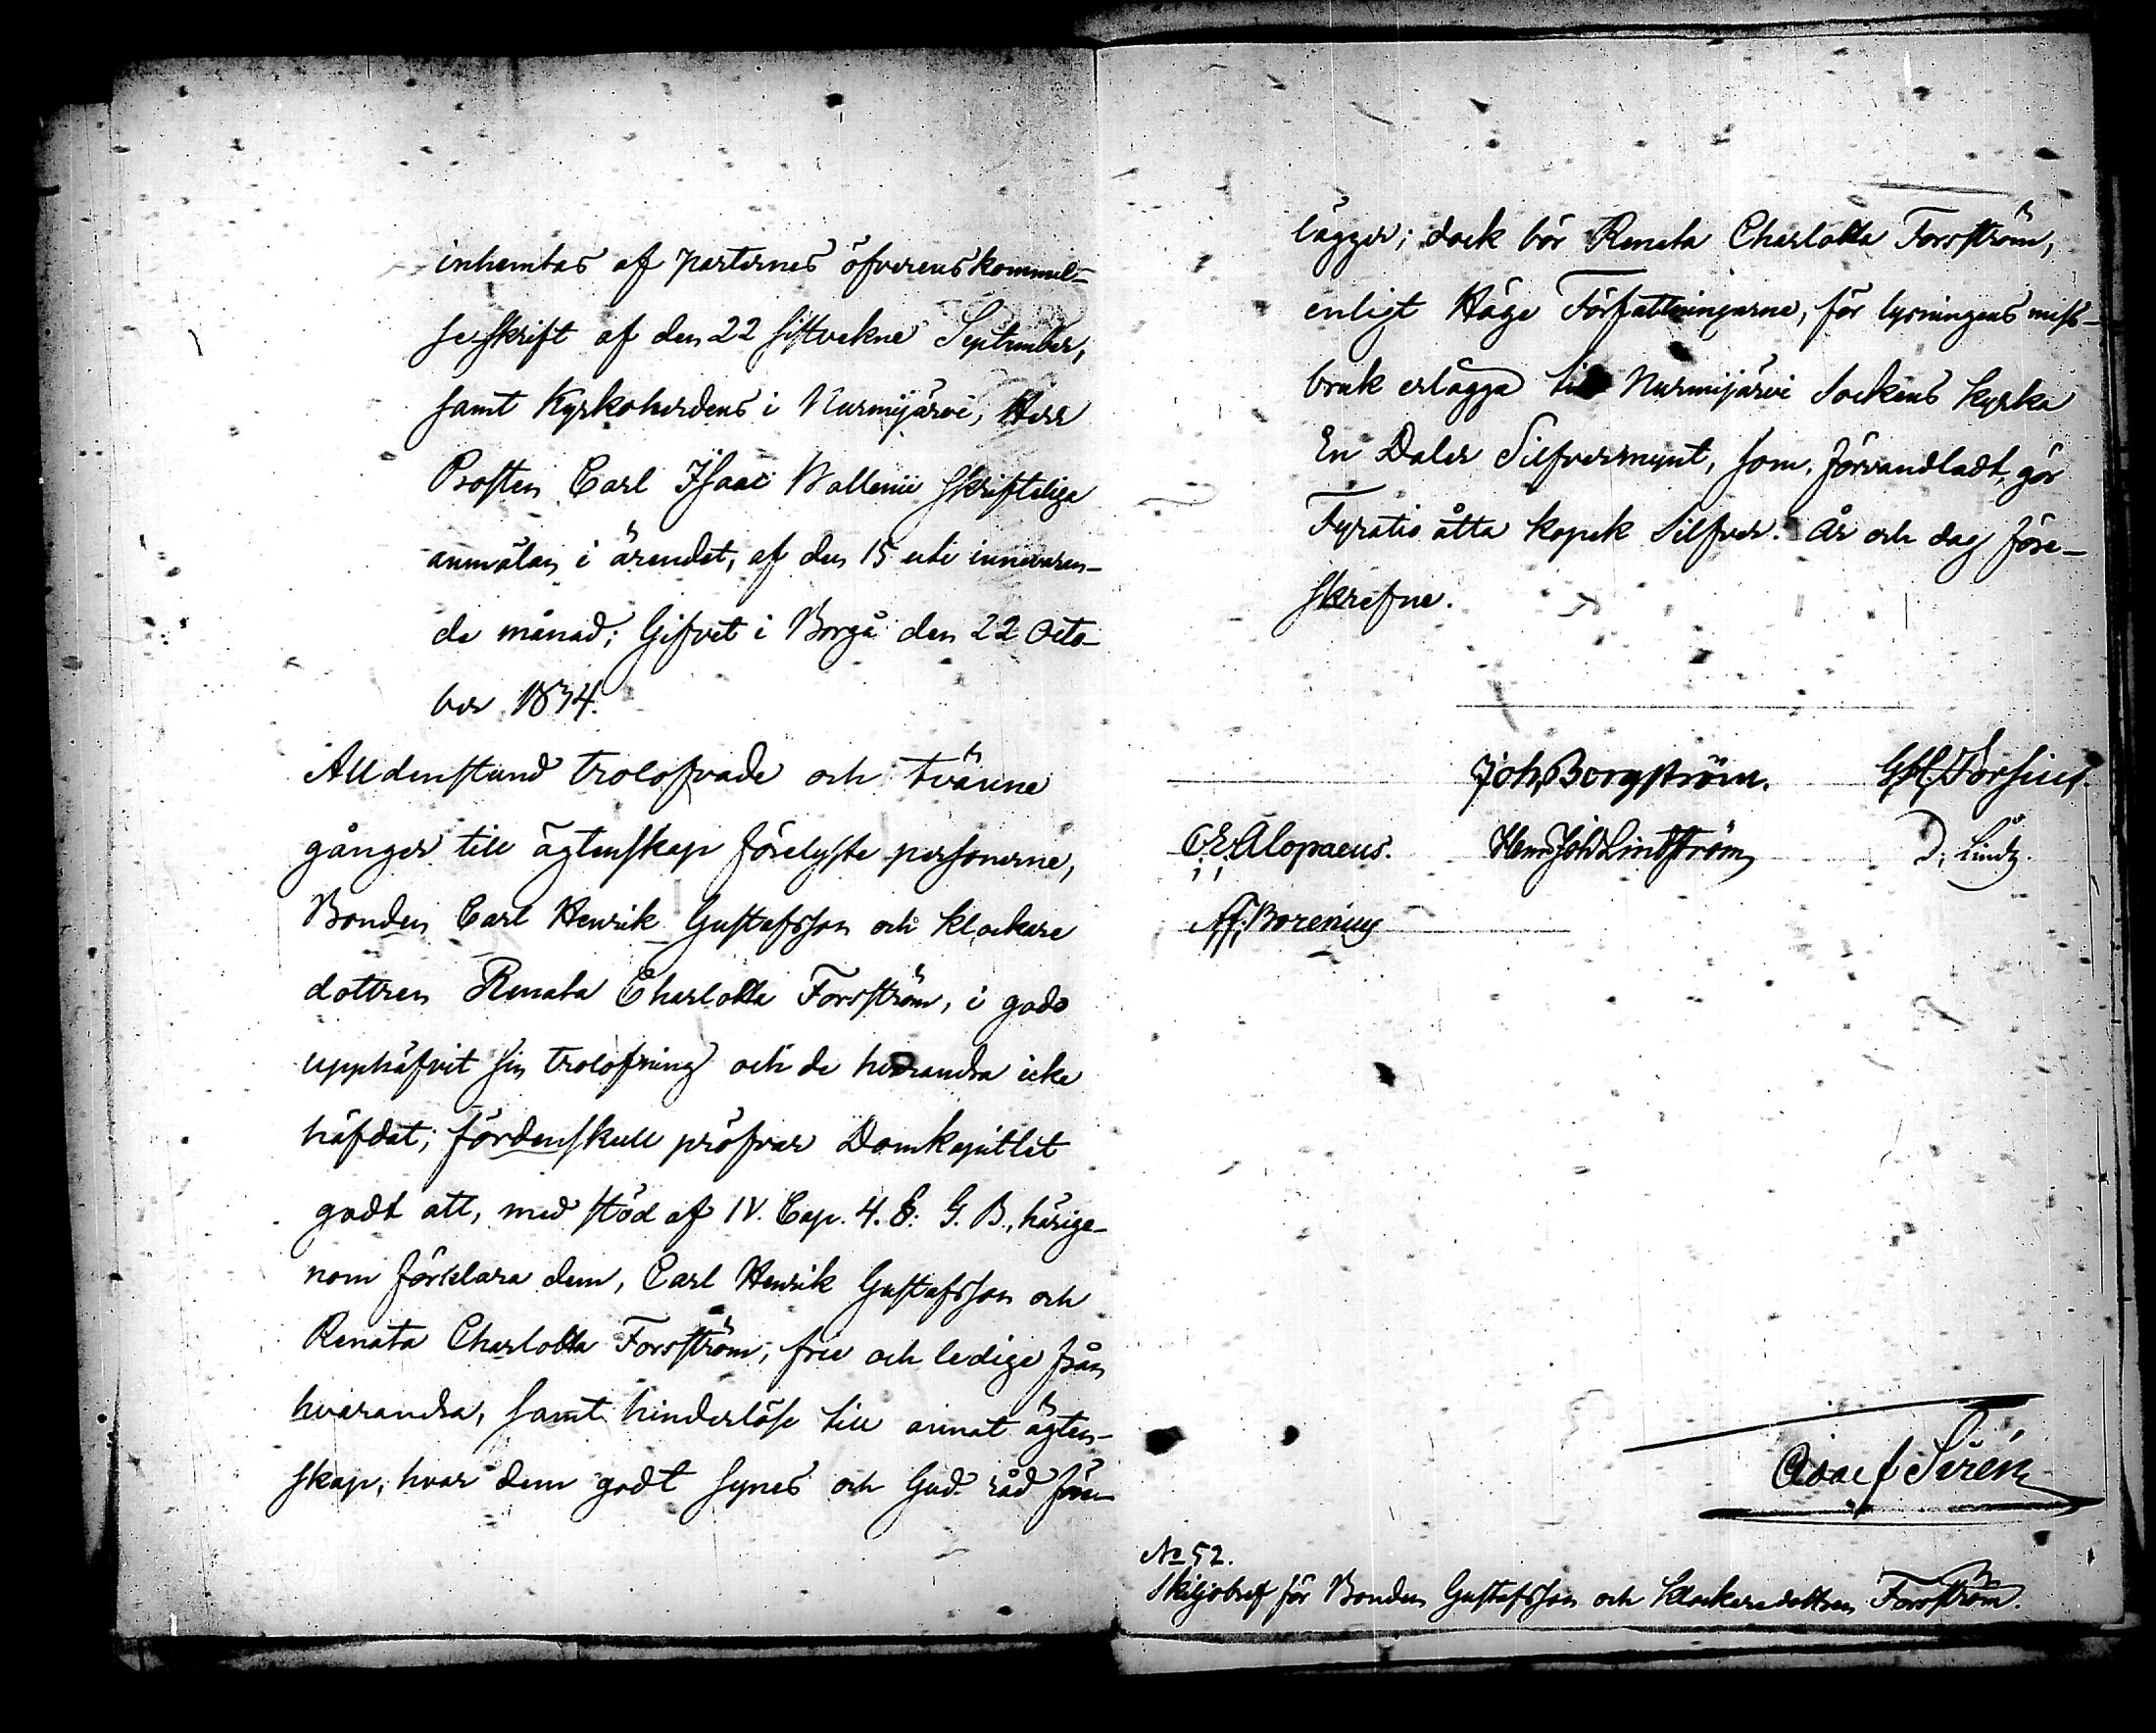 inhemtas af parternes öfverenskommel-
seskrift af den 22 sistvekne September,
samt Kyrkoherdens i Nurmijärvi, Herr
Prosten Carl Isaac Wallenii skrifteliga
anmälan i ärendet, af den 15 uti innevaran-
de månad; Gifvet i Borgå den 22 Octo-
ber 1834.
Alldenstund trolofvade och tvänne
gånger till ägtenskap förelyste personerne,
Bonden Carl Henrik Gustafsson och klockare
dottren Renata Charlotta Forsström, i godo
upphäfvit sin trolofning och de hvarandra icke
häfdat; fördenskull pröfvar Domkapitlet
godt att, med stöd af IV. Cap. 4. §. G. B., härige-
nom förklara dem, Carl Henrik Gustafsson och
Renata Charlotta Forsström, frie och ledige från
hvarandra, samt hinderlöse till annat ägten-
skap, hvar dem godt synes och Gud råd före-
lägger; dock bör Renata Charlotta Forsström,
enligt Höge Författningarne, för lysningens miss-
bruk erlägga till Nurmijärvi Sockens kyrka
En Daler Silfvermynt, som, förvandladt, gör
Fyratio åtta kopek Silfver. År och dag före-
skrefne.
Joh. Borgström. G. H. Forsius.
C. E. Alopaeus. Henr. Joh. Lindström D. Lindh.
A. F. Borenius
Adolf Sirén
No 52.
Skiljobref för Bonden Gustafsson och Klockaredottren Forsström.